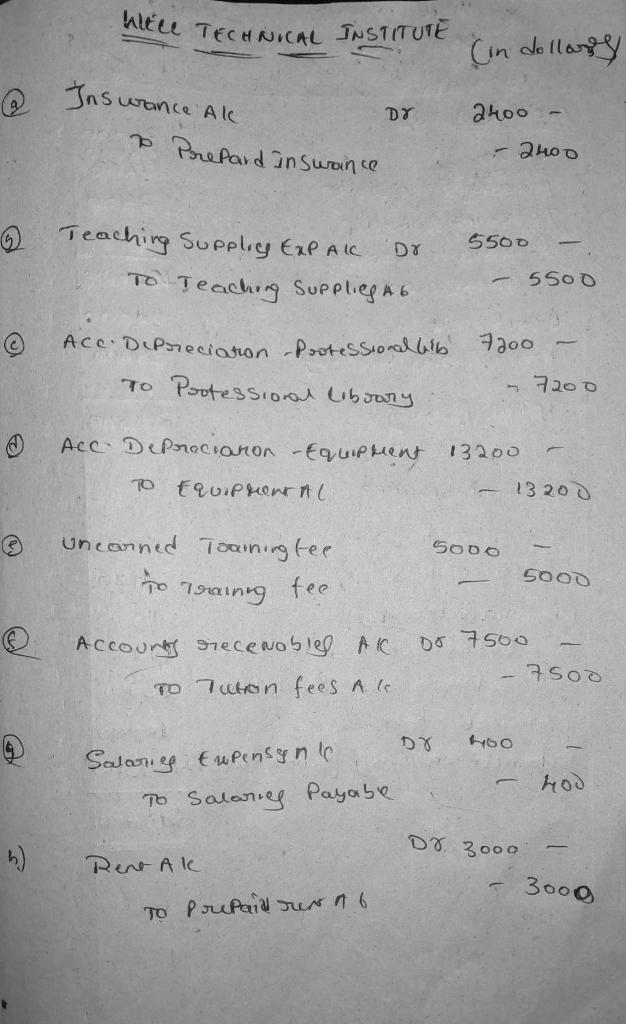 WELLS TECHNICAL INSTITUTE (in dollars)
(a) Insurance A/c Dr 2400 -
To Prepard insurance - 2400
(b) Teaching Supplies Exp A/c Dr 5500 -
To Teaching Supplies A/c - 5500
(c) Acc. Depreciation - Professional lib 7200 -
To Professional library - 7200
(d) Acc. Depreciation - Equipment 13200 -
To Equipment A/c - 13200
(e) unearned Training fee 5000 -
To Training fee - 5000
(f) Accounts receivables A/c Dr 7500 -
To Tution fees A/c - 7500
(g) Salaries Expenses A/c Dr 400 -
To Salaries Payable - 400
h) Rent A/c Dr 3000 -
To Prepaid rent A/c - 3000